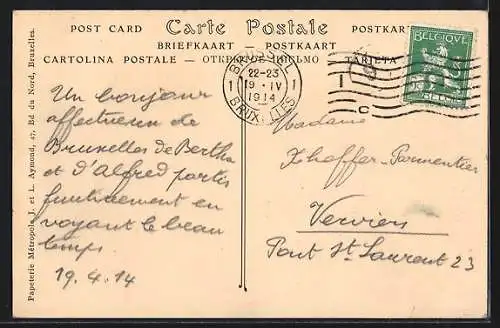 POST CARD Carte Postale POSTKAR
BRIEFKAART — POSTKAART
CARTOLINA POSTALE — ОТКРЫТОЕ ПИСЬМО TARJETA
BRUSSEL
1 22-23 1
19 · IV
1914
BRUXELLES
1
C
BELGIQUE
BELGIË
Papeterie Métropole J. et L. Aymond, 47, Bd du Nord, Bruxelles.
Un bonjour
affectueux de
Bruxelles de Bertha
et d'Alfred partis
en
voyant le beau
temps
19.4.14
Madame
Parmentier
Verviers
Pont St Laurent 23